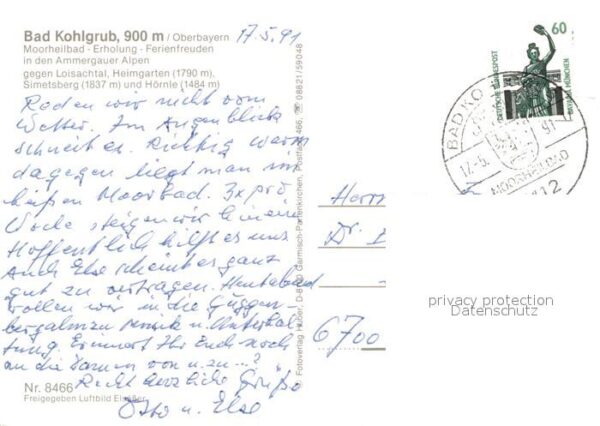 Bad Kohlgrub, 900 m / Oberbayern
17.5.91
Moorheilbad - Erholung - Ferienfreuden
in den Ammergauer Alpen
gegen Loisachtal, Heimgarten (1790 m),
Simetsberg (1837 m) und Hörnle (1484 m)
Reden wir nicht vom
Wetter. Im Augenblick
schneit es. Richtig warm
dagegen liegt man im
heißen Moorbad. 3x pro
Woche steigen wir hinein
Hoffentlich hilft es uns
Auch Else scheint es ganz
gut zu vertragen. Heute abend
wollen wir in die Guggen-
bergalm zu Musik u. Unterhal-
tung. Erinnert Ihr Euch noch
an die von u. zu...?
Recht herzliche Grüße
Otto u. Else
Nr. 8466
Freigegeben Luftbild
Fotoverlag Huber, D-8100 Garmisch-Partenkirchen, Postfach 466, 08821/59048
60
DEUTSCHE BUNDESPOST
BAVARIA MÜNCHEN
BAD KO
17.-5. 91
MOORHEILBAD
Herrn
Dr.
6700
privacy protection
Datenschutz